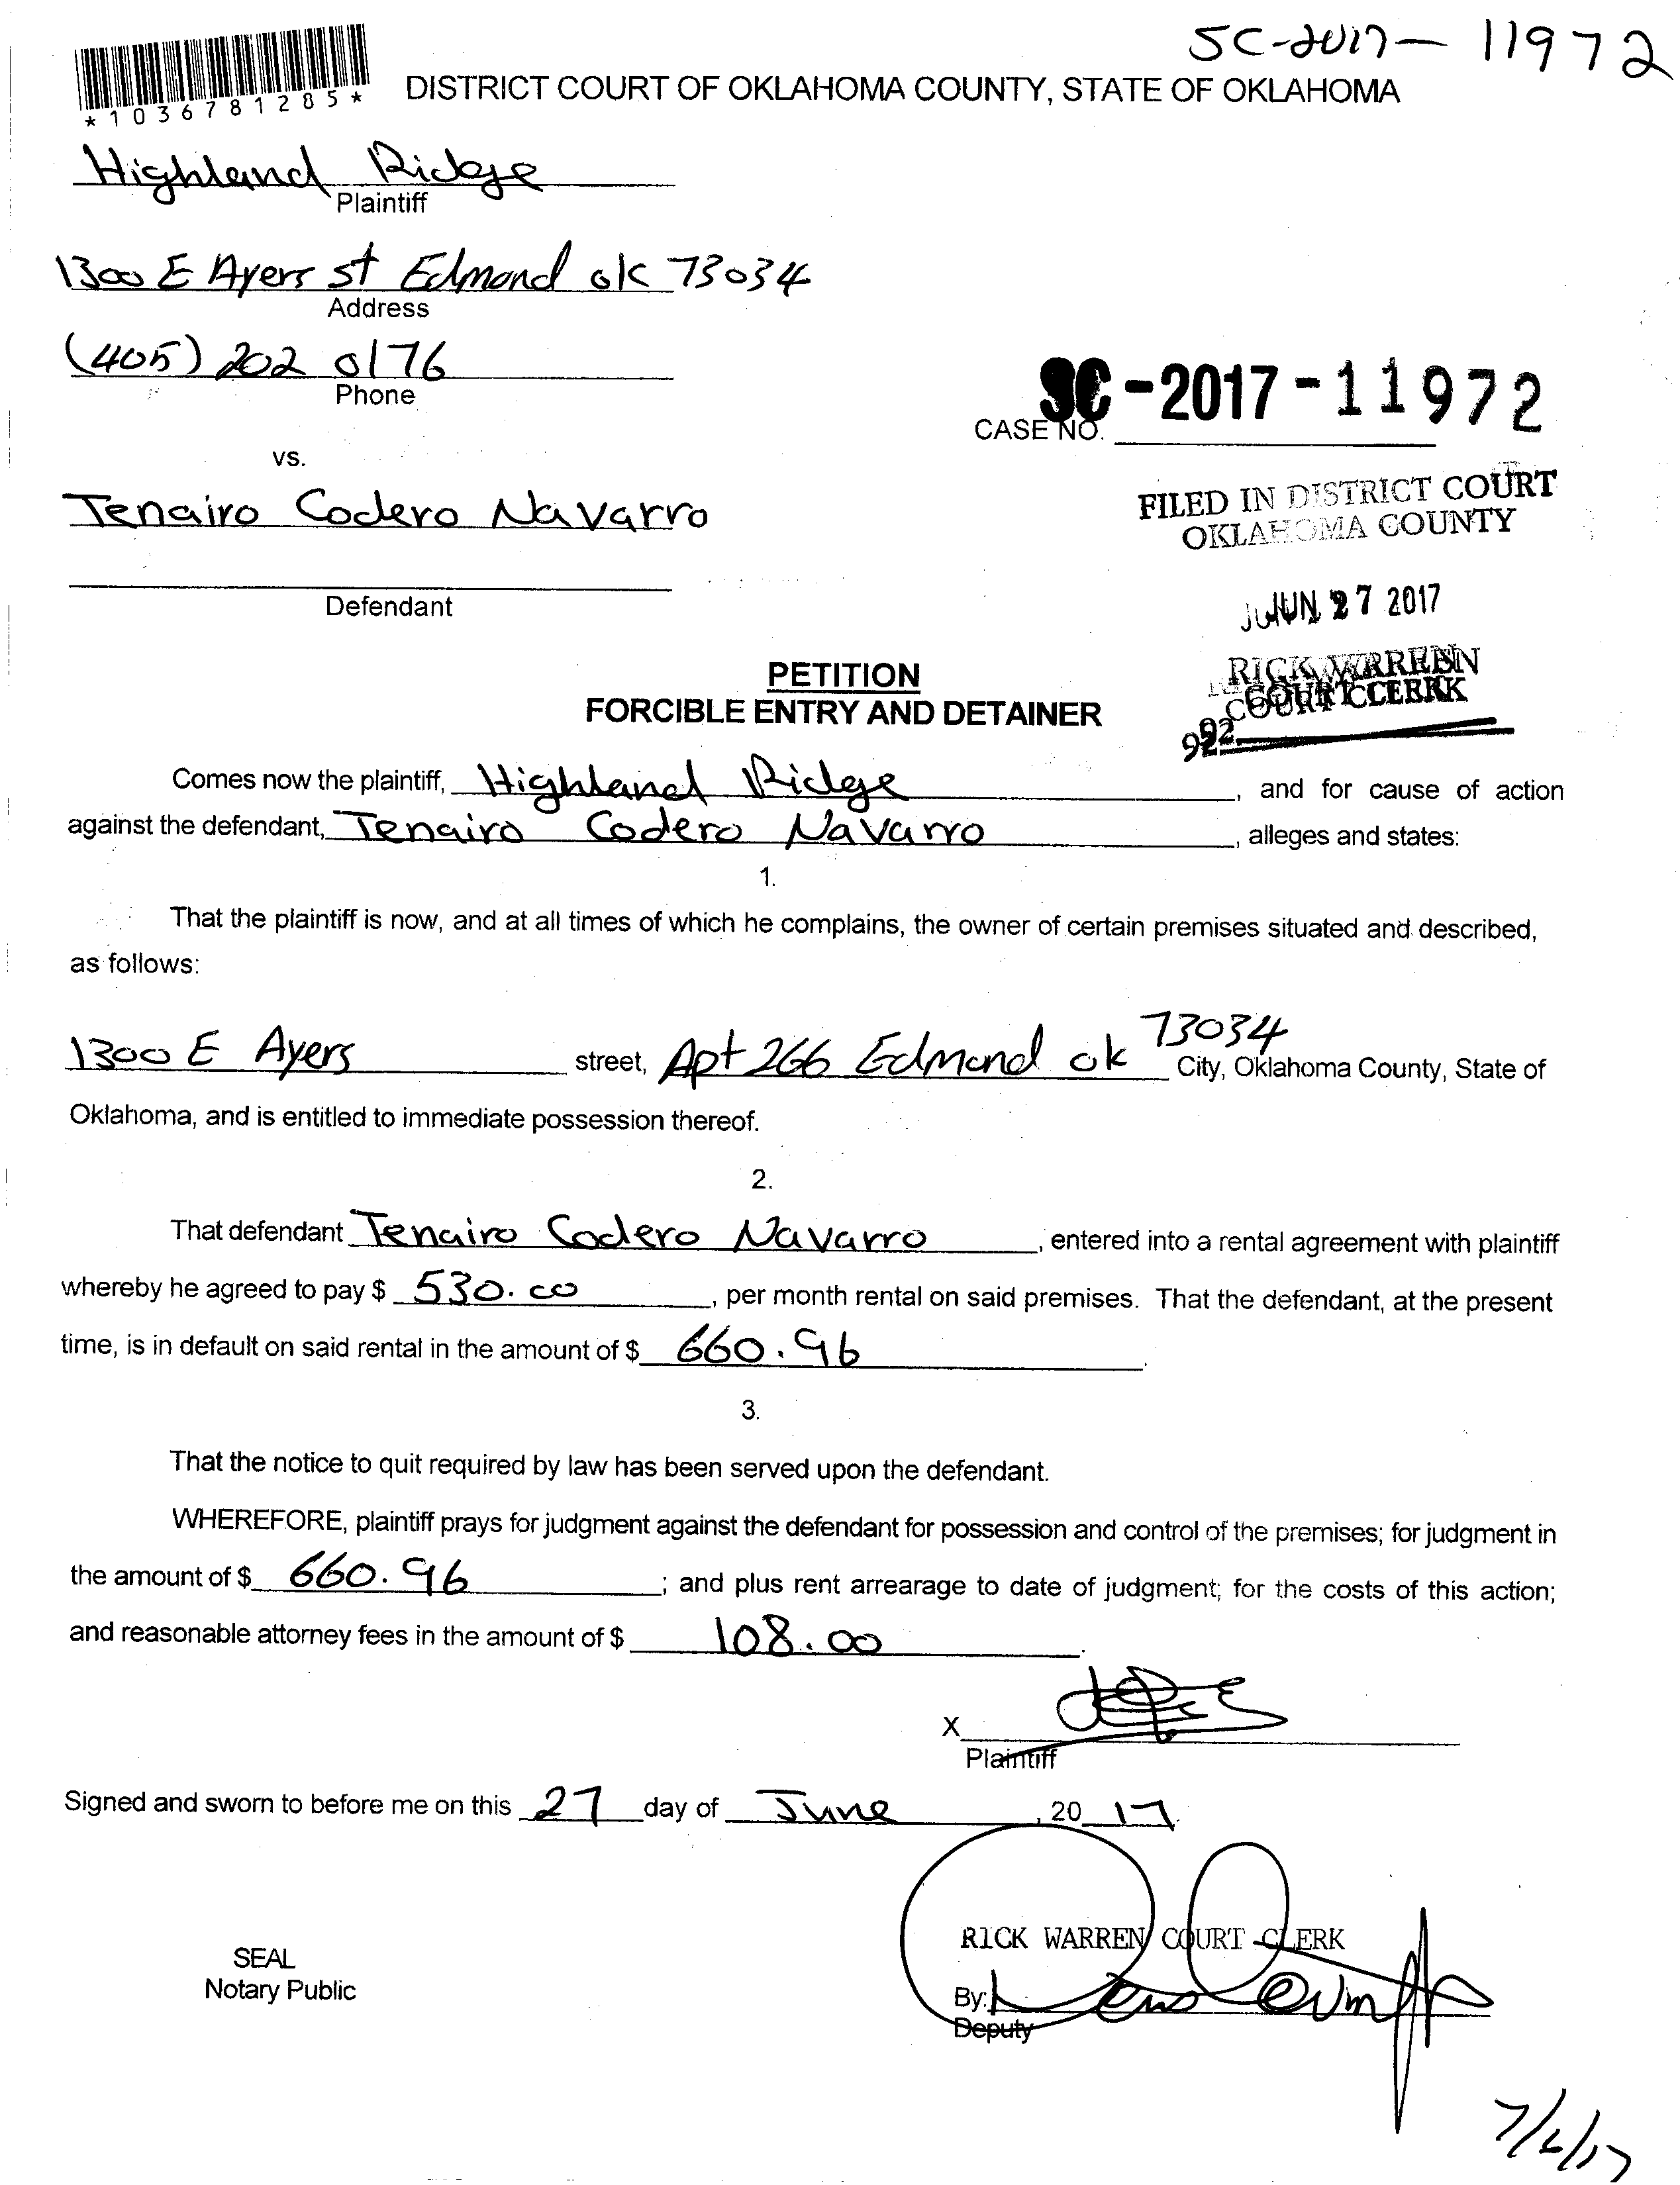 SC-2017-11972
*1036781285*
DISTRICT COURT OF OKLAHOMA COUNTY, STATE OF OKLAHOMA
Highland Ridge
Plaintiff
1300 E Ayers st Edmond ok 73034
Address
(405) 202 0176
Phone
SC-2017-11972
CASE NO.
vs.
Tenairo Codero Navarro
FILED IN DISTRICT COURT
OKLAHOMA COUNTY
Defendant
JUN 27 2017
RICK WARREN
COURT CLERK
92
PETITION
FORCIBLE ENTRY AND DETAINER
Comes now the plaintiff, Highland Ridge, and for cause of action
against the defendant, Tenairo Codero Navarro, alleges and states:
1.
That the plaintiff is now, and at all times of which he complains, the owner of certain premises situated and described,
as follows:
1300 E Ayers street, Apt 266 Edmond ok 73034 City, Oklahoma County, State of
Oklahoma, and is entitled to immediate possession thereof.
2.
That defendant Tenairo Codero Navarro, entered into a rental agreement with plaintiff
whereby he agreed to pay $ 530.00, per month rental on said premises. That the defendant, at the present
time, is in default on said rental in the amount of $ 660.96.
3.
That the notice to quit required by law has been served upon the defendant.
WHEREFORE, plaintiff prays for judgment against the defendant for possession and control of the premises; for judgment in
the amount of $ 660.96; and plus rent arrearage to date of judgment; for the costs of this action;
and reasonable attorney fees in the amount of $ 108.00.
X
Plaintiff
Signed and sworn to before me on this 27 day of June, 20 17.
RICK WARREN COURT CLERK
SEAL
Notary Public
By:
Deputy